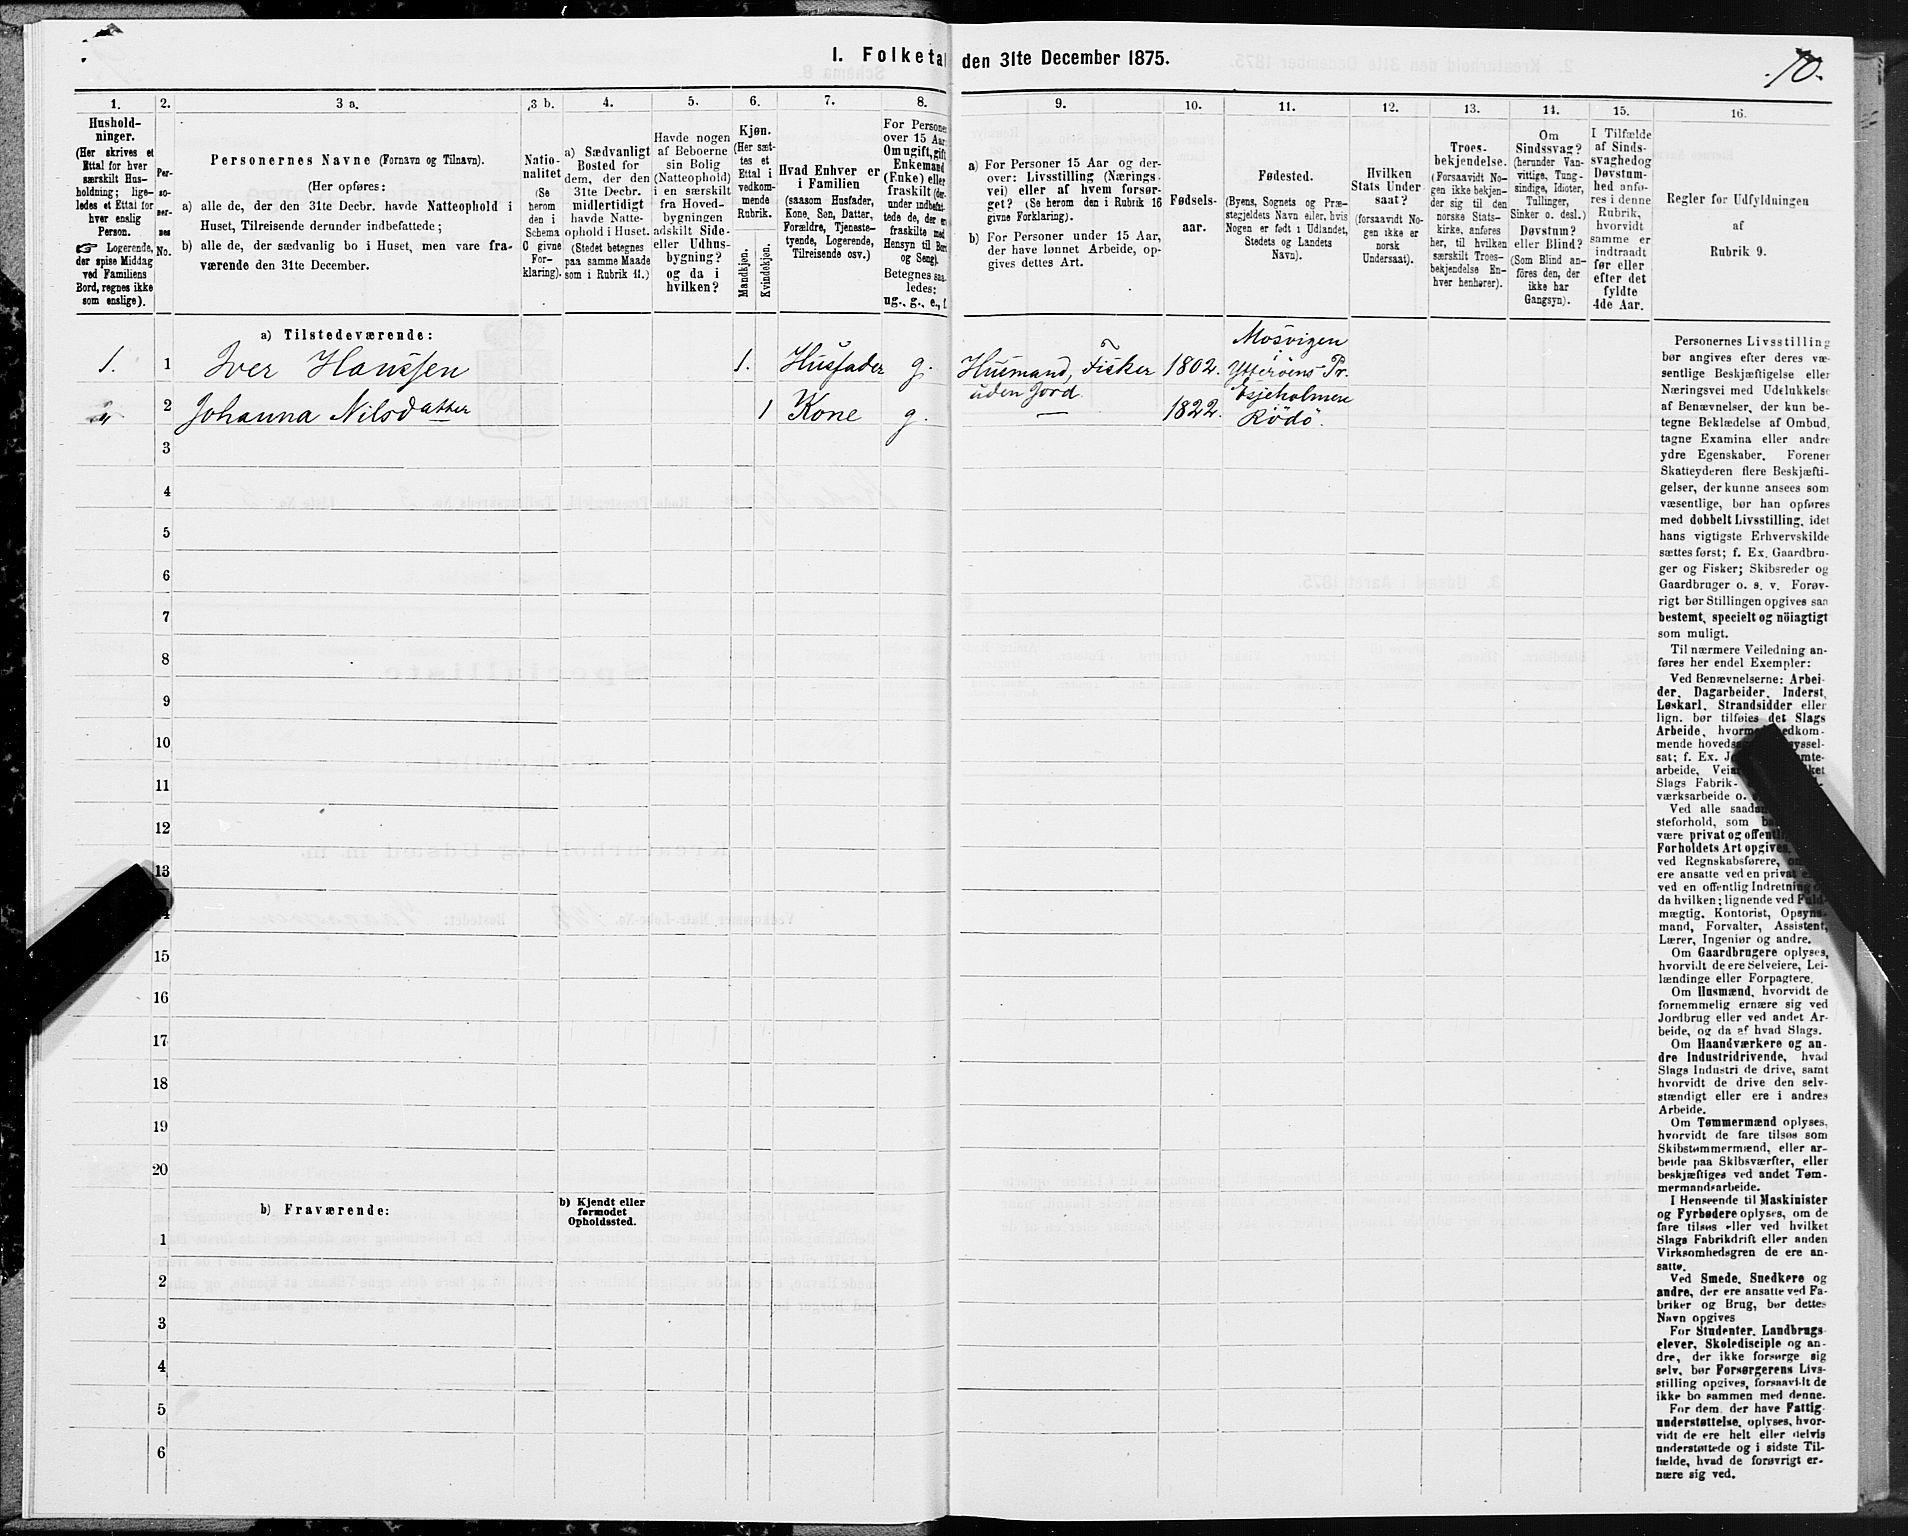 I. Folketal den 31te December 1875.
10.
1.
Hushold-
ninger.
(Her skrives et
Ettal for hver
særskilt Hus-
holdning; lige-
ledes et Ettal for
hver enslig
Person.
☞ Logerende,
der spise Middag
ved Familiens
Bord, regnes ikke
som enslige).
2.
Per-
so-
ner-
nes
No.
3 a.
Personernes Navne (Fornavn og Tilnavn).
(Her opføres:
a) alle de, der den 31te Decbr. havde Natteophold i
Huset, Tilreisende derunder indbefattede;
b) alle de, der sædvanlig bo i Huset, men vare fra-
værende den 31te December.
3 b.
Natio-
nalitet
(Se
herom
den i
Schema
C givne
For-
klaring).
4.
a) Sædvanligt
Bosted for
dem, der den
31te Decbr.
midlertidigt
havde Natte-
ophold i Huset.
(Stedet betegnes
paa samme Maade
som i Rubrik 11.)
5.
Havde nogen
af Beboerne
sin Bolig
(Natteophold)
i en særskilt
fra Hoved-
bygningen
adskilt Side-
eller Udhus-
bygning?
og da i
hvilken?
6.
Kjøn.
(Her sæt-
tes et
Ettal i
vedkom-
mende
Rubrik.
Mandkjøn.
Kvindekjøn.
7.
Hvad Enhver er
i Familien
(saasom Husfader,
Kone, Søn, Datter,
Forældre, Tjeneste-
tyende, Logerende,
Tilreisende osv.)
8.
For Personer
over 15 Aar:
Om ugift, gift,
Enkemand
(Enke) eller
fraskilt (der-
under indbefat-
tede de, der ere
fraskilte med
Hensyn til Bord
og Seng).
Betegnes saa-
ledes:
ug., g., e., f.
9.
a) For Personer 15 Aar og der-
over: Livsstilling (Nærings-
vei) eller af hvem forsør-
get? (Se herom den i Rubrik 16
givne Forklaring).
b) For Personer under 15 Aar,
der have lønnet Arbeide, op-
gives dettes Art.
10.
Fødsels-
aar.
11.
Fødested.
(Byens, Sognets og Præ-
stegjeldets Navn eller, hvis
Nogen er født i Udlandet,
Stedets og Landets
Navn).
12.
Hvilken
Stats Under-
saat?
(forsaavidt No-
gen ikke er
norsk
Undersaat).
13.
Troes-
bekjendelse.
(Forsaavidt No-
gen ikke bekjen-
der sig til den
norske Stats-
kirke, anføres
her, til hvilken
særskilt Troes-
bekjendelse En-
hver henhører).
14.
Om
Sindssvag?
(herunder Van-
vittige, Tung-
sindige, Idioter,
Tullinger,
Sinker o. desl.)
Døvstum?
eller Blind?
(Som Blind an-
føres den, der
ikke har
Gangsyn).
15.
I Tilfælde
af Sinds-
svaghed og
Døvstum-
hed anfø-
res i denne
Rubrik,
hvorvidt
samme er
indtraadt
før eller
efter det
fyldte
4de Aar.
16.
Regler for Udfyldningen
af
Rubrik 9.
a) Tilstedeværende:
1. 1 Iver Hanssen 1. Husfader g. Husmand, Fisker uden Jord. 1802. Mosvigen i Ytterøens Pr.
" 2 Johanna Nilsdatter 1 Kone g. — 1822. Esjeholmene Rødø.
3
4
5
6
7
8
9
10
11
12
13
15
16
17
18
19
20
b) Fraværende:
b) Kjendt eller
formodet
Opholdssted.
1
2
3
4
5
6
Personernes Livsstilling
bør angives efter deres væ-
sentlige Beskjæftigelse eller
Næringsvei med Udelukkelse
af Benævnelser, der kun be-
tegne Beklædelse af Ombud,
tagne Examina eller andre
ydre Egenskaber. Forener
Skatteyderen flere Beskjæfti-
gelser, der kunne ansees som
væsentlige, bør han opføres
med dobbelt Livsstilling, idet
hans vigtigste Erhvervskilde
sættes først; f. Ex. Gaardbru-
ger og Fisker; Skibsreder og
Gaardbruger o. s. v. Forøv-
rigt bør Stillingen opgives saa
bestemt, specielt og nöiagtigt
som muligt.
Til nærmere Veiledning an-
føres her endel Exempler:
Ved Benævnelserne: Arbei-
der, Dagarbeider, Inderst,
Løskarl, Strandsidder eller
lign. bør tilføies det Slags
Arbeide,
mende
sat; f. Ex.
arbeide,
Slags Fabrik-
værksarbeide o.
Ved alle
steforhold, som
være privat og
Forholdets Art opgives,
ved Regnskabsførere,
ere ansatte ved en privat
ved en offentlig Indretning
da hvilken; lignende ved Fuld-
mægtig, Kontorist, Opsyns-
mand, Forvalter, Assistent,
Lærer, Ingeniør og andre.
Om Gaardbrugere oplyses,
hvorvidt de ere Selveiere, Lei-
lændinge eller Forpagtere.
Om Husmænd, hvorvidt de
fornemmelig ernære sig ved
Jordbrug eller ved andet Ar-
beide, og da af hvad Slags.
Om Haandværkere og an-
dre Industridrivende, hvad
Slags Industri de drive, samt
hvorvidt de drive den selv-
stændigt eller ere i andres
Arbeide.
Om Tømmermænd oplyses,
hvorvidt de fare tilsøs som
Skibstømmermænd, eller ar-
beide paa Skibsværfter, eller
beskjæftiges ved andet Tøm-
mermandsarbeide.
I Henseende til Maskinister
og Fyrbødere oplyses, om de
fare tilsøs eller ved hvilket
Slags Fabrikdrift eller anden
Virksomhedsgren de ere an-
satte.
Ved Smede, Snedkere og
andre, der ere ansatte ved Fa-
briker og Brug, bør dettes
Navn opgives
For Studenter, Landbrugs-
elever, Skoledisciple og an-
dre, der ikke forsørge sig
selv, bør Forsørgerens Livs-
stilling opgives, forsaavidt de
ikke bo sammen med denne.
For dem, der have Fattig-
understøttelse, oplyses, hvor-
vidt de ere helt eller delvis
understøttede og i sidste Til-
fælde, hvad de forøvrigt er-
nære sig ved.